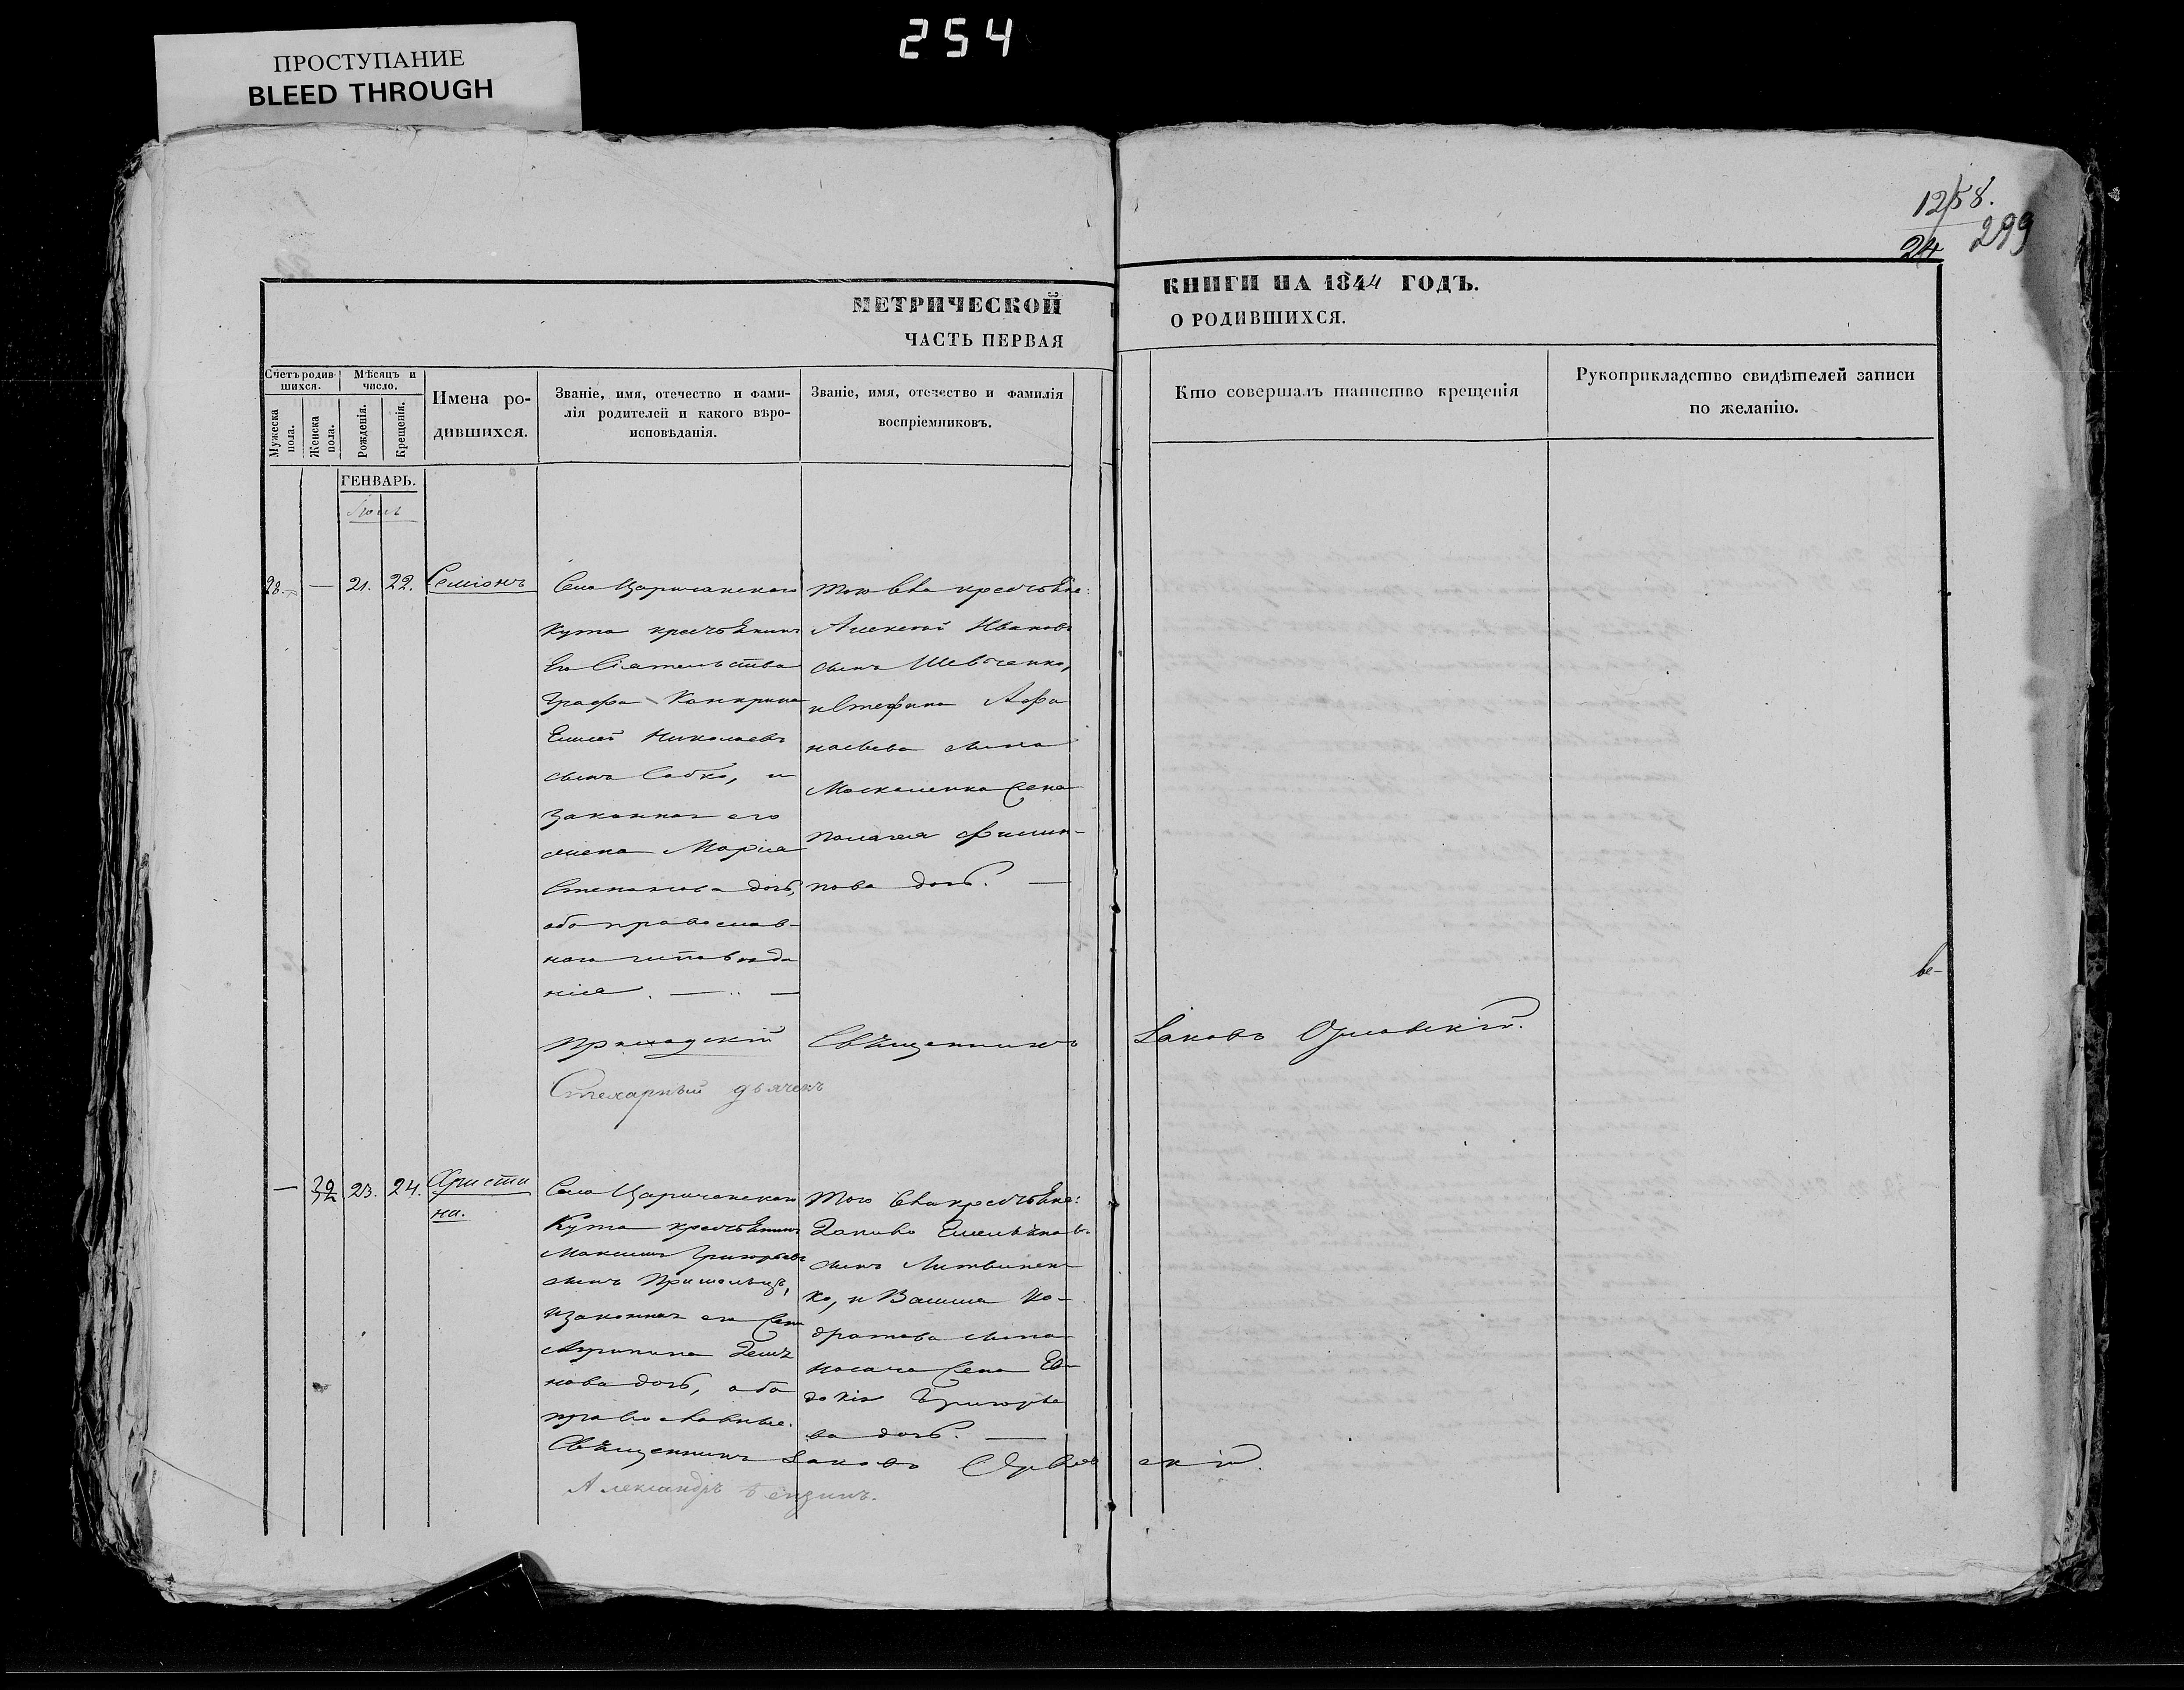 254
ПРОСТУПАНИЕ
BLEED THROUGH
12/58.
24 299
МЕТРИЧЕСКОЙ
ЧАСТЬ ПЕРВАЯ
КНИГИ НА 1844 ГОДЪ.
О РОДИВШИХСЯ.
Счетъ родив-
шихся.
Мужеска
пола.
Женска
пола.
Мѣсяцъ и
число.
Рожденія.
Крещенія.
Имена ро-
дившихся.
Званіе, имя, отечество и фами-
лія родителей и какого вѣро-
исповѣданія.
Званіе, имя, отечество и фамилія
воспріемниковъ.
Кто совершалъ таинство крещенія
Рукоприкладство свидѣтелей записи
по желанію.
ГЕНВАРЬ.
28. — 21. 22. Семіонъ
Села Царичанскаго
Кута крестьянинъ
Его Сіятельства
Графа Канкрина
Елисей Николаевъ
сынъ Сабко, и
законная его
жена Марія
Степанова дочь,
оба православ-
наго исповѣда
нія. — —
того села крестьяне:
Алексѣй Ивановъ
сынъ Шевченко,
и Стефана Афа
насьева сына
Москаленка жена
Пелагея Филип-
пова дочь. —
ве-
Приходскій Священникъ Іаковъ Орловскій.
Стихарный дьячекъ
— 32 23. 24. Христи
на.
Села Царичанскаго
Кута крестьянинъ
Максимъ Григорьевъ
сынъ Пришолецъ,
и законная его жена
Агрипина Демья
нова дочь, оба
православные.
Того села крестьяне:
Іаковъ Емельяновъ
сынъ Литвинен
ко, и Василія Ко-
дратова сына
Носача жена Ев
докія Григорье
ва дочь. —
Священникъ Іаковъ Орловскій.
Александръ